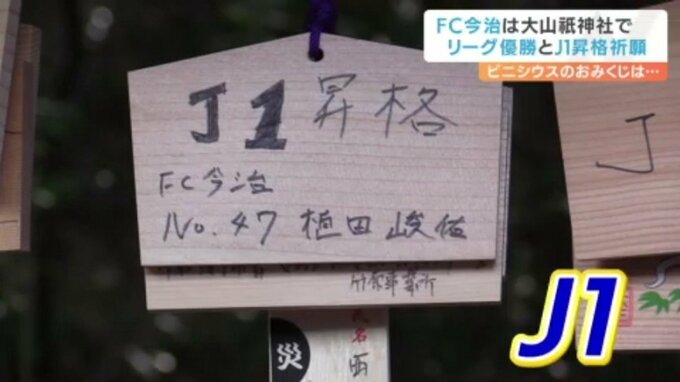 FC今治は大山祇神社で
リーグ優勝とJ1昇格祈願
ビニシウスのおみくじは…
J1昇格
FC今治
No.47 植田峻佑
J
災
J1